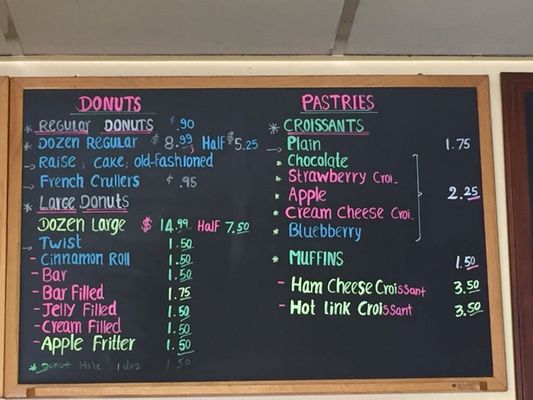 DONUTS
* REGULAR DONUTS $ .90
* DOZEN REGULAR $ 8.99; HALF $5.25
→ RAISE, CAKE, OLD-FASHIONED
→ FRENCH CRULLERS $ .95
* LARGE DONUTS
DOZEN LARGE $ 14.99 HALF 7.50
→ TWIST 1.50
- CINNAMON ROLL 1.50
- BAR 1.50
- BAR FILLED 1.75
- JELLY FILLED 1.50
- CREAM FILLED 1.50
- APPLE FRITTER 1.50
* DONUT HOLE 1 DOZ 1.50
PASTRIES
* CROISSANTS
→ PLAIN 1.75
* CHOCOLATE
* STRAWBERRY CROI.
* APPLE 2.25
* CREAM CHEESE CROI.
* BLUEBBERRY
* MUFFINS 1.50
- HAM CHEESE CROISSANT 3.50
- HOT LINK CROISSANT 3.50